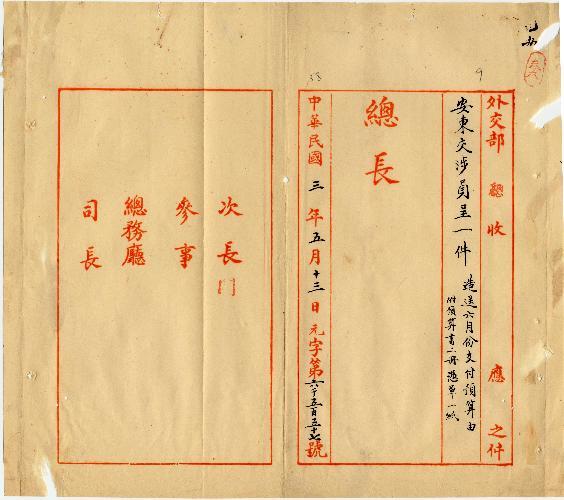 外交部 總收 應 之件
安東交涉員呈一件
造送六月份支付預算由
附預算書二冊憑單一紙
總長
中華民國三年五月十三日元字第六千五百五十七號
次長
參事
總務廳
司長
38
9